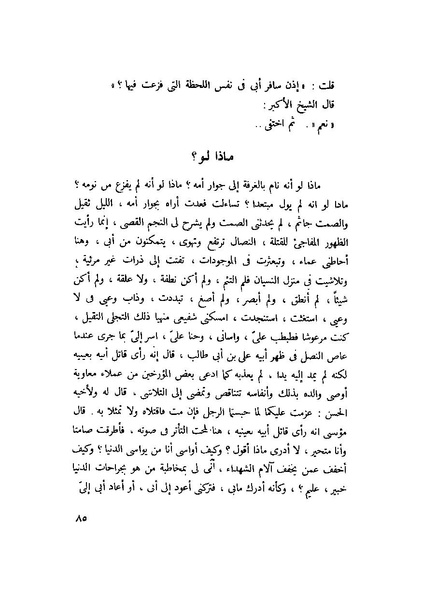 قلت : « إذن سافر أبى فى نفس اللحظة التى فزعت فيها ؟ »
قال الشيخ الأكبر :
« نعم » . ثم اختفى . .
ماذا لو ؟
ماذا لو أنه نام بالغرفة إلى جوار أمه ؟ ماذا لو أنه لم يفزع من نومه ؟
ماذا لو انه لم يول مبتعدا ؟ تساءلت فعدت أراه بجوار أمه ، الليل ثقيل
والصمت جاثم ، لم يحدثنى الصمت ولم يشرح لى النجم القصى ، إنما رأيت
الظهور المفاجئ للقتلة ، النصال ترتفع وتهوى ، يتمكنون من أبى ، وهنا
أحاطنى عماء ، وتبعثرت فى الموجودات ، تفتت إلى ذرات غير مرئية ،
وتلاشيت فى منزل النسيان فلم ألتئم ، ولم أكن نطفة ، ولا علقة ، ولم أكن
شيئاً ، لم أنطق ، ولم أبصر ، ولم أصغ ، تبددت ، وذاب وعيى فى لا
وعيى ، استغثت ، استنجدت ، امسكنى شفيعى منهيا ذلك التجلى الثقيل ،
كنت مرعوشا فطبطب علىّ ، واسانى ، وحنا علىّ ، اسر إلىّ بما جرى عندما
غاص النصل فى ظهر أبيه على بن أبى طالب ، قال إنه رأى قاتل أبيه بعينيه
لكنه لم يمد إليه يدا ، لم يعذبه كما ادعى بعض المؤرخين من عملاء معاوية
أوصى والده بذلك وأنفاسه تتناقص وتمضى إلى التلاشى ، قال له ولأخيه
الحسن : عزمت عليكما لما حبستما الرجل فإن مت فاقتلاه ولا تمثلا به . قال
مؤنسى انه رأى قاتل أبيه بعينيه ، هنا لمحت التأثر فى صوته ، فأطرقت صامتا
وأنا متحير ، لا أدرى ماذا أقول ؟ وكيف أواسى أنا من يواسى الدنيا ؟ وكيف
أخفف عمن يخفف آلام الشهداء ، أنّى لى بمخاطبة من هو بجراحات الدنيا
خبير ، عليم ؟ ، وكأنه أدرك مابى ، فتركنى أعود إلى أبى ، أو أعاد أبى إلىّ
٨٥